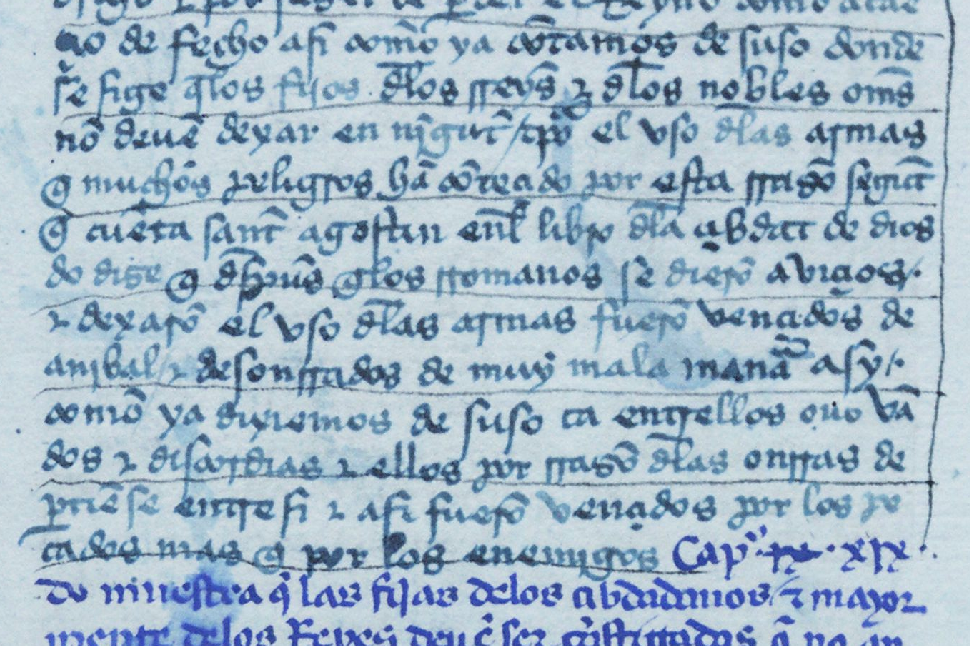 ȼio de fecho asi com̃o ya cõtamos de suso donde
se sige q̃ los fijos d̃los rreys ⁊ d̃los nobles om̃s
nõ deuẽ dexar en nĩgũt tp̃o el vso d̃las armas
q̃ muchos peligros hã cõtecido por esta rrazõ segũt
q̃ cuẽta sant agostin enl̃ libro d̃la cibdat de dios
do dize q̃ desp̃us q̃ los rromanos se dierõ a vicios
⁊ dexarõ el vso d̃las armas fuerõ vencidos de
anibal ⁊ desonrrados de muy mala manã asy
com̃o ya diximos de suso ca entrellos ouo vã
dos ⁊ discordias ⁊ ellos por rrazõ d̃las onrras de
entresi ⁊ asi fuerõ vencidos por los pe
cados mas q̃ por los enemigos Capº xix
do muestra q̃ las fijas delos cibdadanos ⁊ mayor
mente delos Reyes deuẽ ser q̃ no an